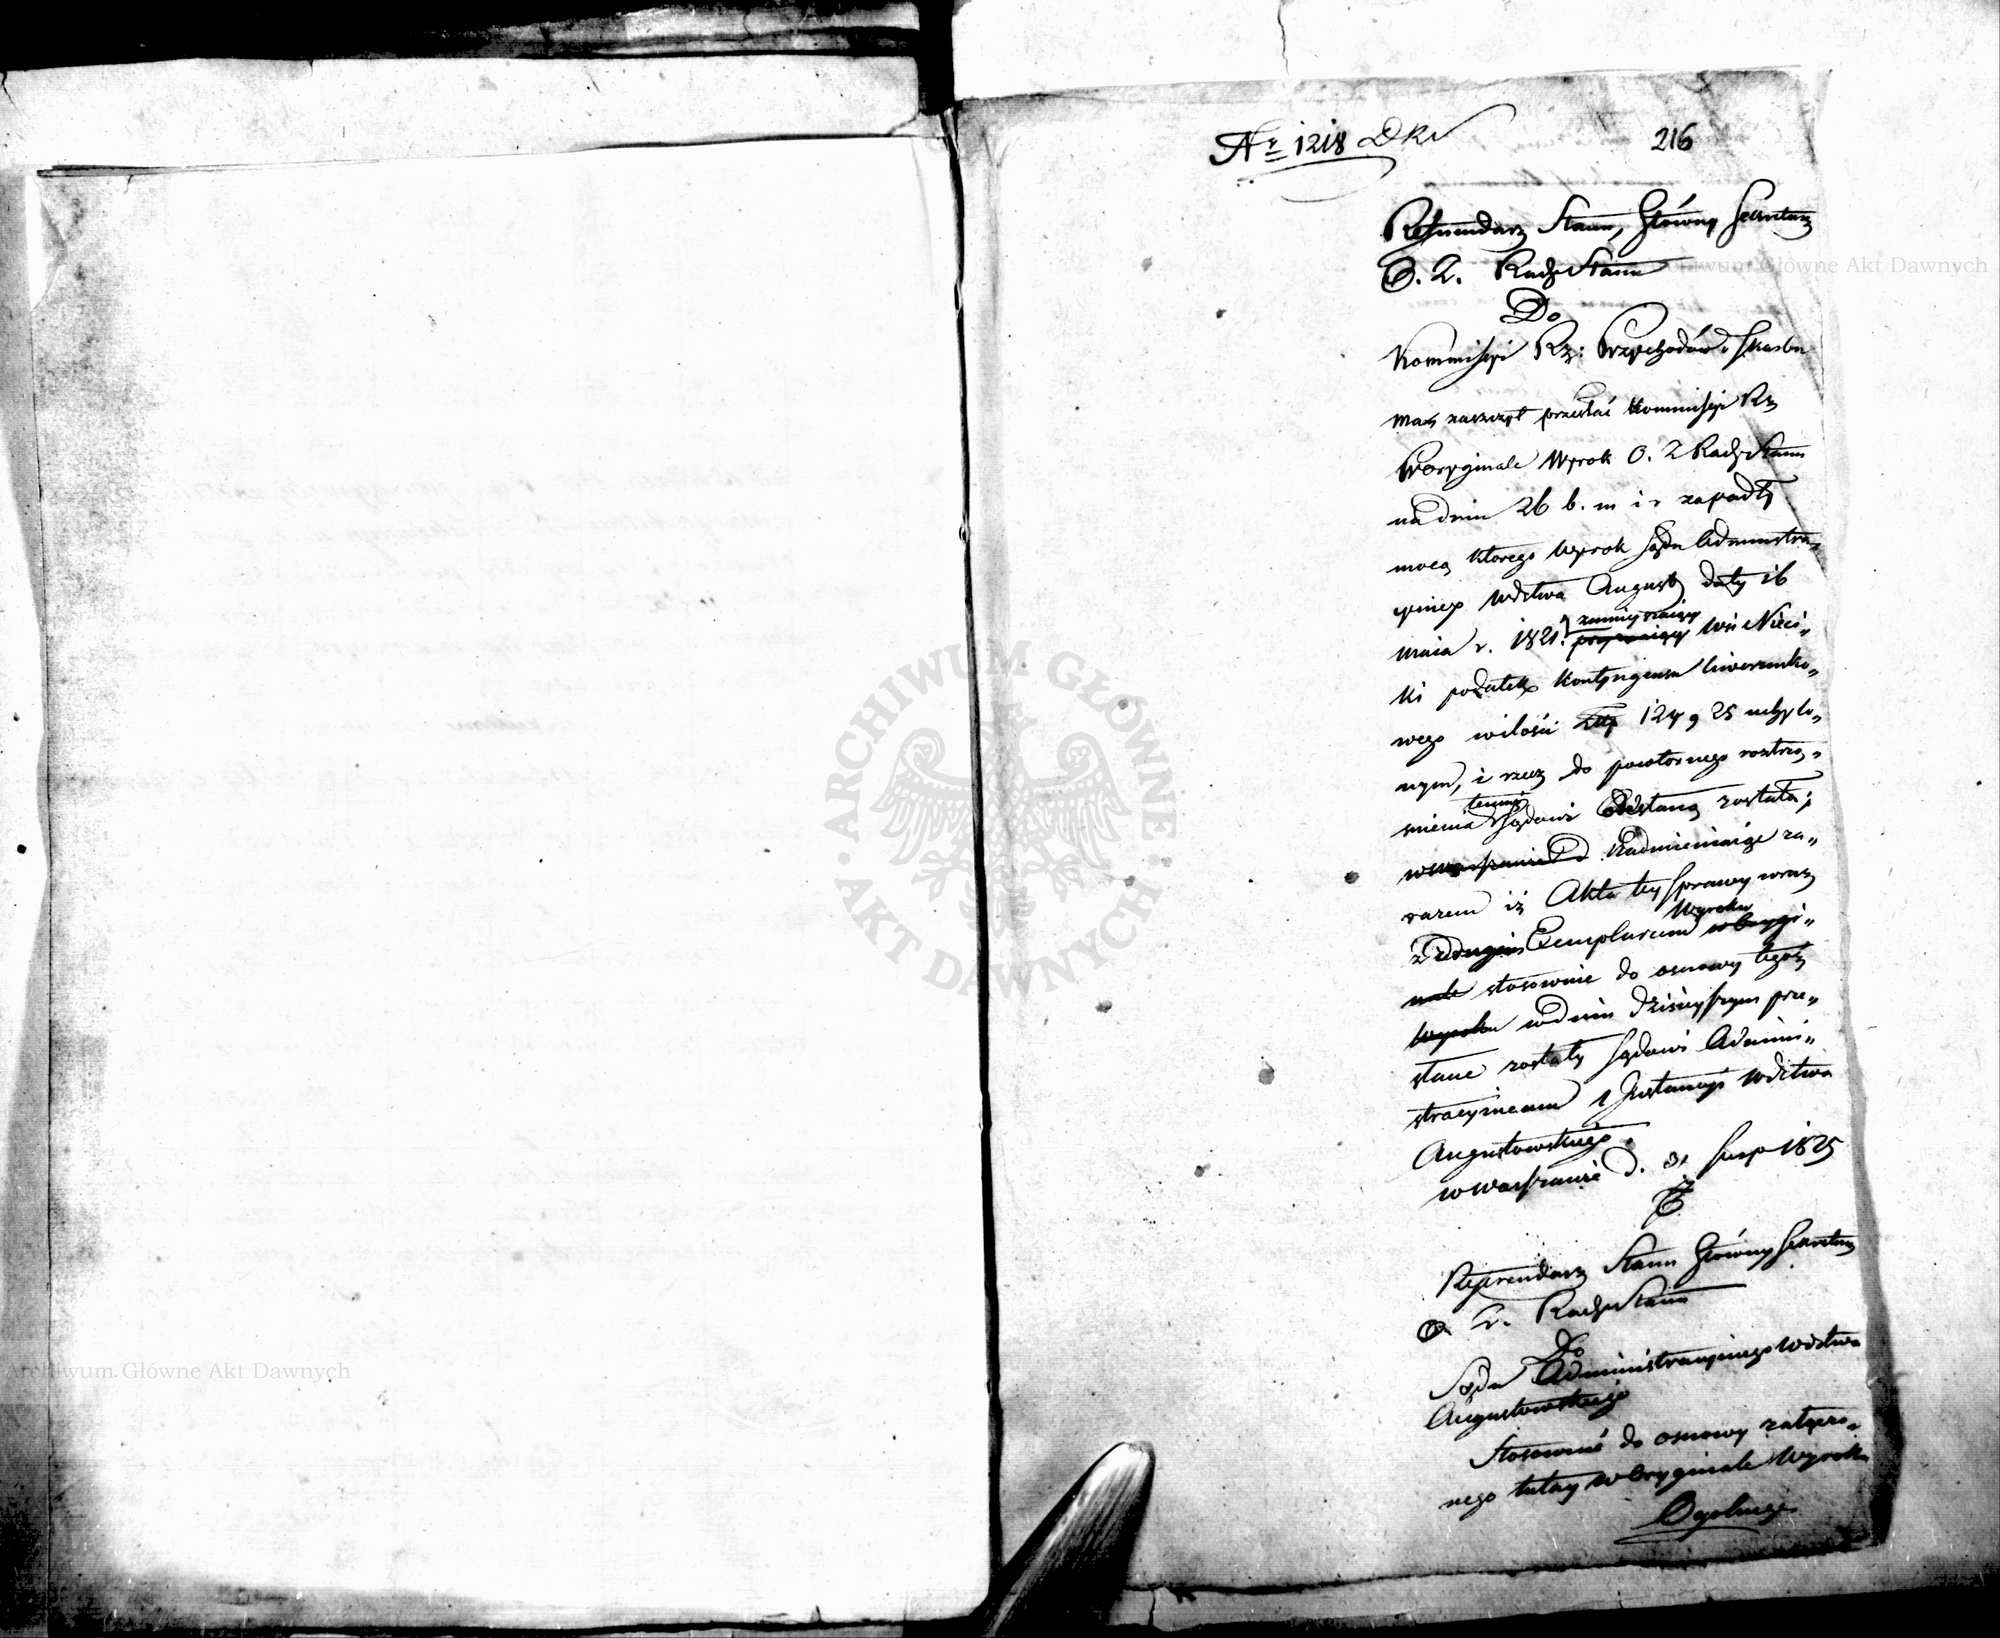 Nr 1218 DKr
216
Referendarz Stanu, Główny Sekretarz
O. Z. Rady Stanu
Do
Kommissyi Rz: Przychodów i Skarbu
mam zaszczyt przesłać Kommissyi Rz
Woryginale Wyrok O. Z Rady Stanu
na dniu 26 b. m i r zapadły
mocą ktorego Wyrok Sądu Administra„
cyinego Wdztwa August daty 16
Maia r. 1821.
Wsi Nieci„
ki podatek Kontyngensu liwerunko„
wego wilości Złp 124 g 25 uchylo„
nym, i rzecz do powtornego roztrzą„
snienia temuż Sądowi Odesłaną została;
w Warszawie d Nadmieniaiąc za„
razem iż Akta tey Sprawy wraz
z Drugim Exemplarzem Wyroku w Orygi„
nale stosownie do osnowy tegoż
Wyroku w dniu dzisieyszym prze„
słane zostały Sądowi Admini„
stracyinemu 1 Instancyi Wdztwa
Augustowskiego.
w Warszawie d. 31 Sierp 1825
Referendarz Stanu Główny Sekretarz
O. Z. Rady Stanu
Do
Sądu Administracyinego Wdztwa
Augustowskiego
Stosownie do osnowy załączo„
nego tutay w Oryginale Wyroku
Archiwum Główne Akt Dawnych
Archiwum Główne Akt Dawnych
ARCHIWUM GŁÓWNE · AKT DAWNYCH ·